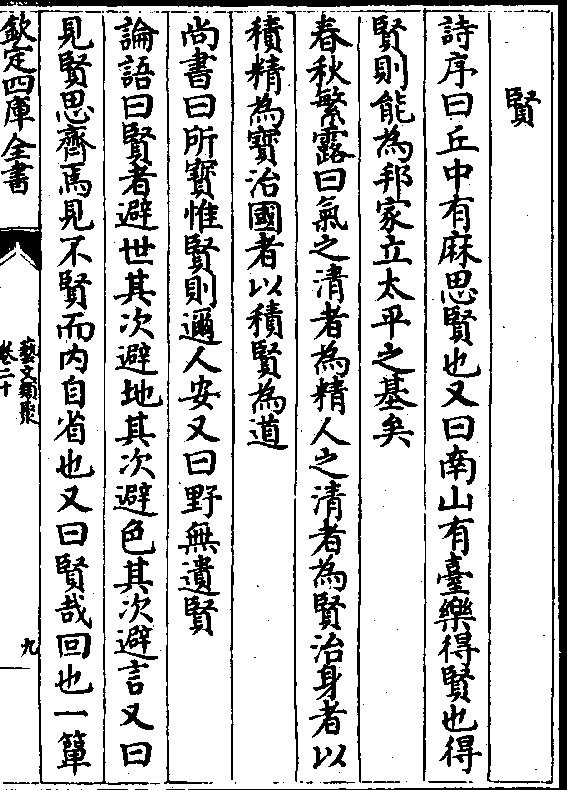 賢
詩序曰丘中有麻思賢也又曰南山有臺樂得賢也得
賢則能為邦家立太平之基矣
春秋繁露曰氣之清者為精人之清者為賢治身者以
積精為寶治國者以積賢為道
尚書曰所寳惟賢則邇人安又曰野無遺賢
論語曰賢者避世其次避地其次避色其次避言又曰
見賢思齊焉見不賢而内自省也又曰賢哉回也一簞
欽定四庫全書
藝文類聚
卷二十
九